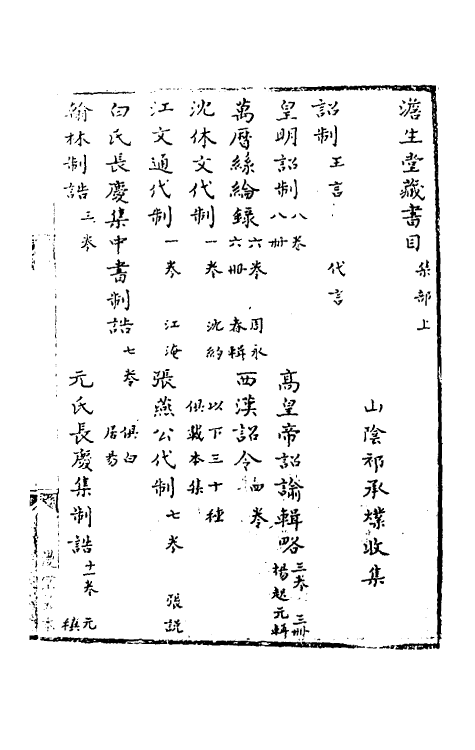 澹生堂藏書目 集部上
山陰祁承㸁收集
詔制 王言 代言
皇明詔制 八卷 八冊 高皇帝詔諭輯略 三卷 三冊 楊起元輯
萬曆絲綸錄 六卷 六冊 周永春輯 西漢詔令 四卷
沈休文代制 一卷 沈約 以下三十種俱載本集
江文通代制 一卷 江淹 張燕公代制 七卷 張説
白氏長慶集中書制誥 七卷 俱白居易
翰林制誥 三卷 元氏長慶集制誥 十一卷 元稹